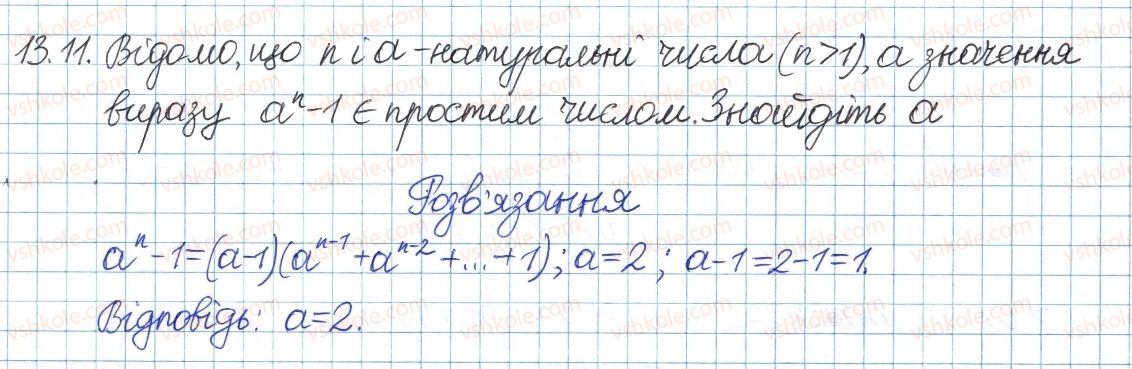 13.11. Відомо, що n і a - натуральні числа (n>1), а значення
виразу aⁿ-1 є простим числом. Знайдіть a
Розв'язання
aⁿ-1=(a-1)(aⁿ⁻¹+aⁿ⁻²+...+1); a=2; a-1=2-1=1.
Відповідь: a=2.